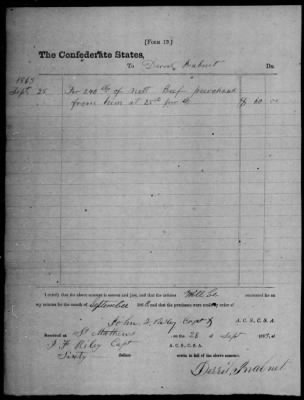 [FORM 12.]
The Confederate States,
To Dr.
1863
Sept. 25 For 240 lbs of nett Beef purchased
from him at 25cts per lb $ 60 00
I certify that the above account is correct and just, and that the articles will be accounted for on
my returns for the month of September 186 and the purchases were made by order of
Capt
A. C. S., C. S. A.
Received at St Mathews on the 28 of Sept 186
J F Riley Capt A. C. S., C. S. A.
Sixty dollars in full of the above account.